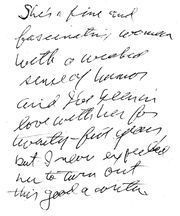 She's a fine and
fascinating woman
with a wicked
sense of humor
and I've been in
love with her for
twenty-five years,
but I never expected
her to turn out
this good a writer.